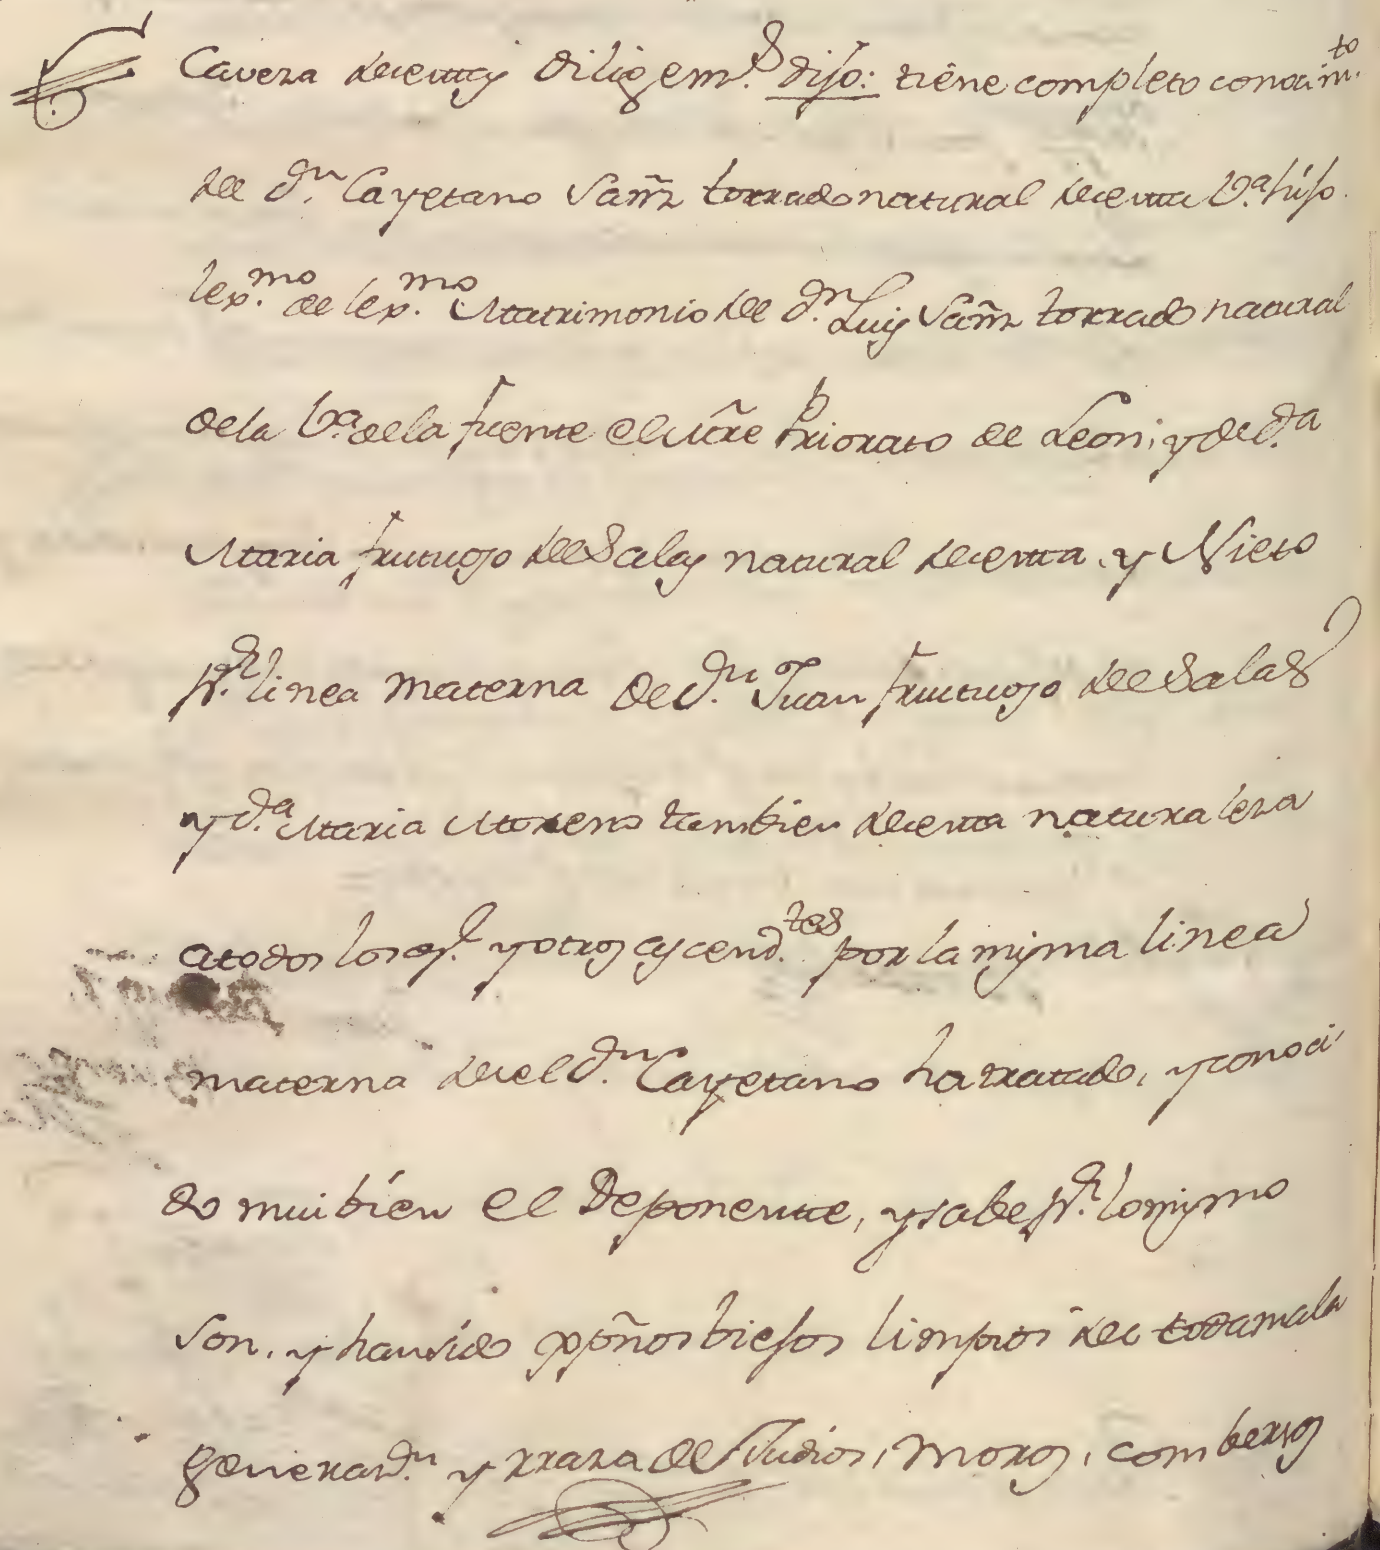 Caveza de estas diligens. dijo: tiene completo conocimto.
de Dn. Cayetano Sanz torrado natural de esta Va. hijo
lexmo. de lexmo. Matrimonio de Dn. Luis Sanz torrado natural
de la Va. de la fuente el Mre Priorato de Leon, y de Da.
Maria fructuoso de Salas natural de esta, y Nieto
pr. linea materna de Dn. Juan fructuoso de Salas
y Da. Maria Moreno tambien de esta naturaleza
a todos los qs. y otros ascendtes. por la misma linea
materna de el Dn. Cayetano ha tratado, y conoci
do mui bien el Deponente, y sabe pr. lo mismo
son, y han sido xpños biejos limpios de toda mala
generasn. y rraza de Judios, Moros, combersos